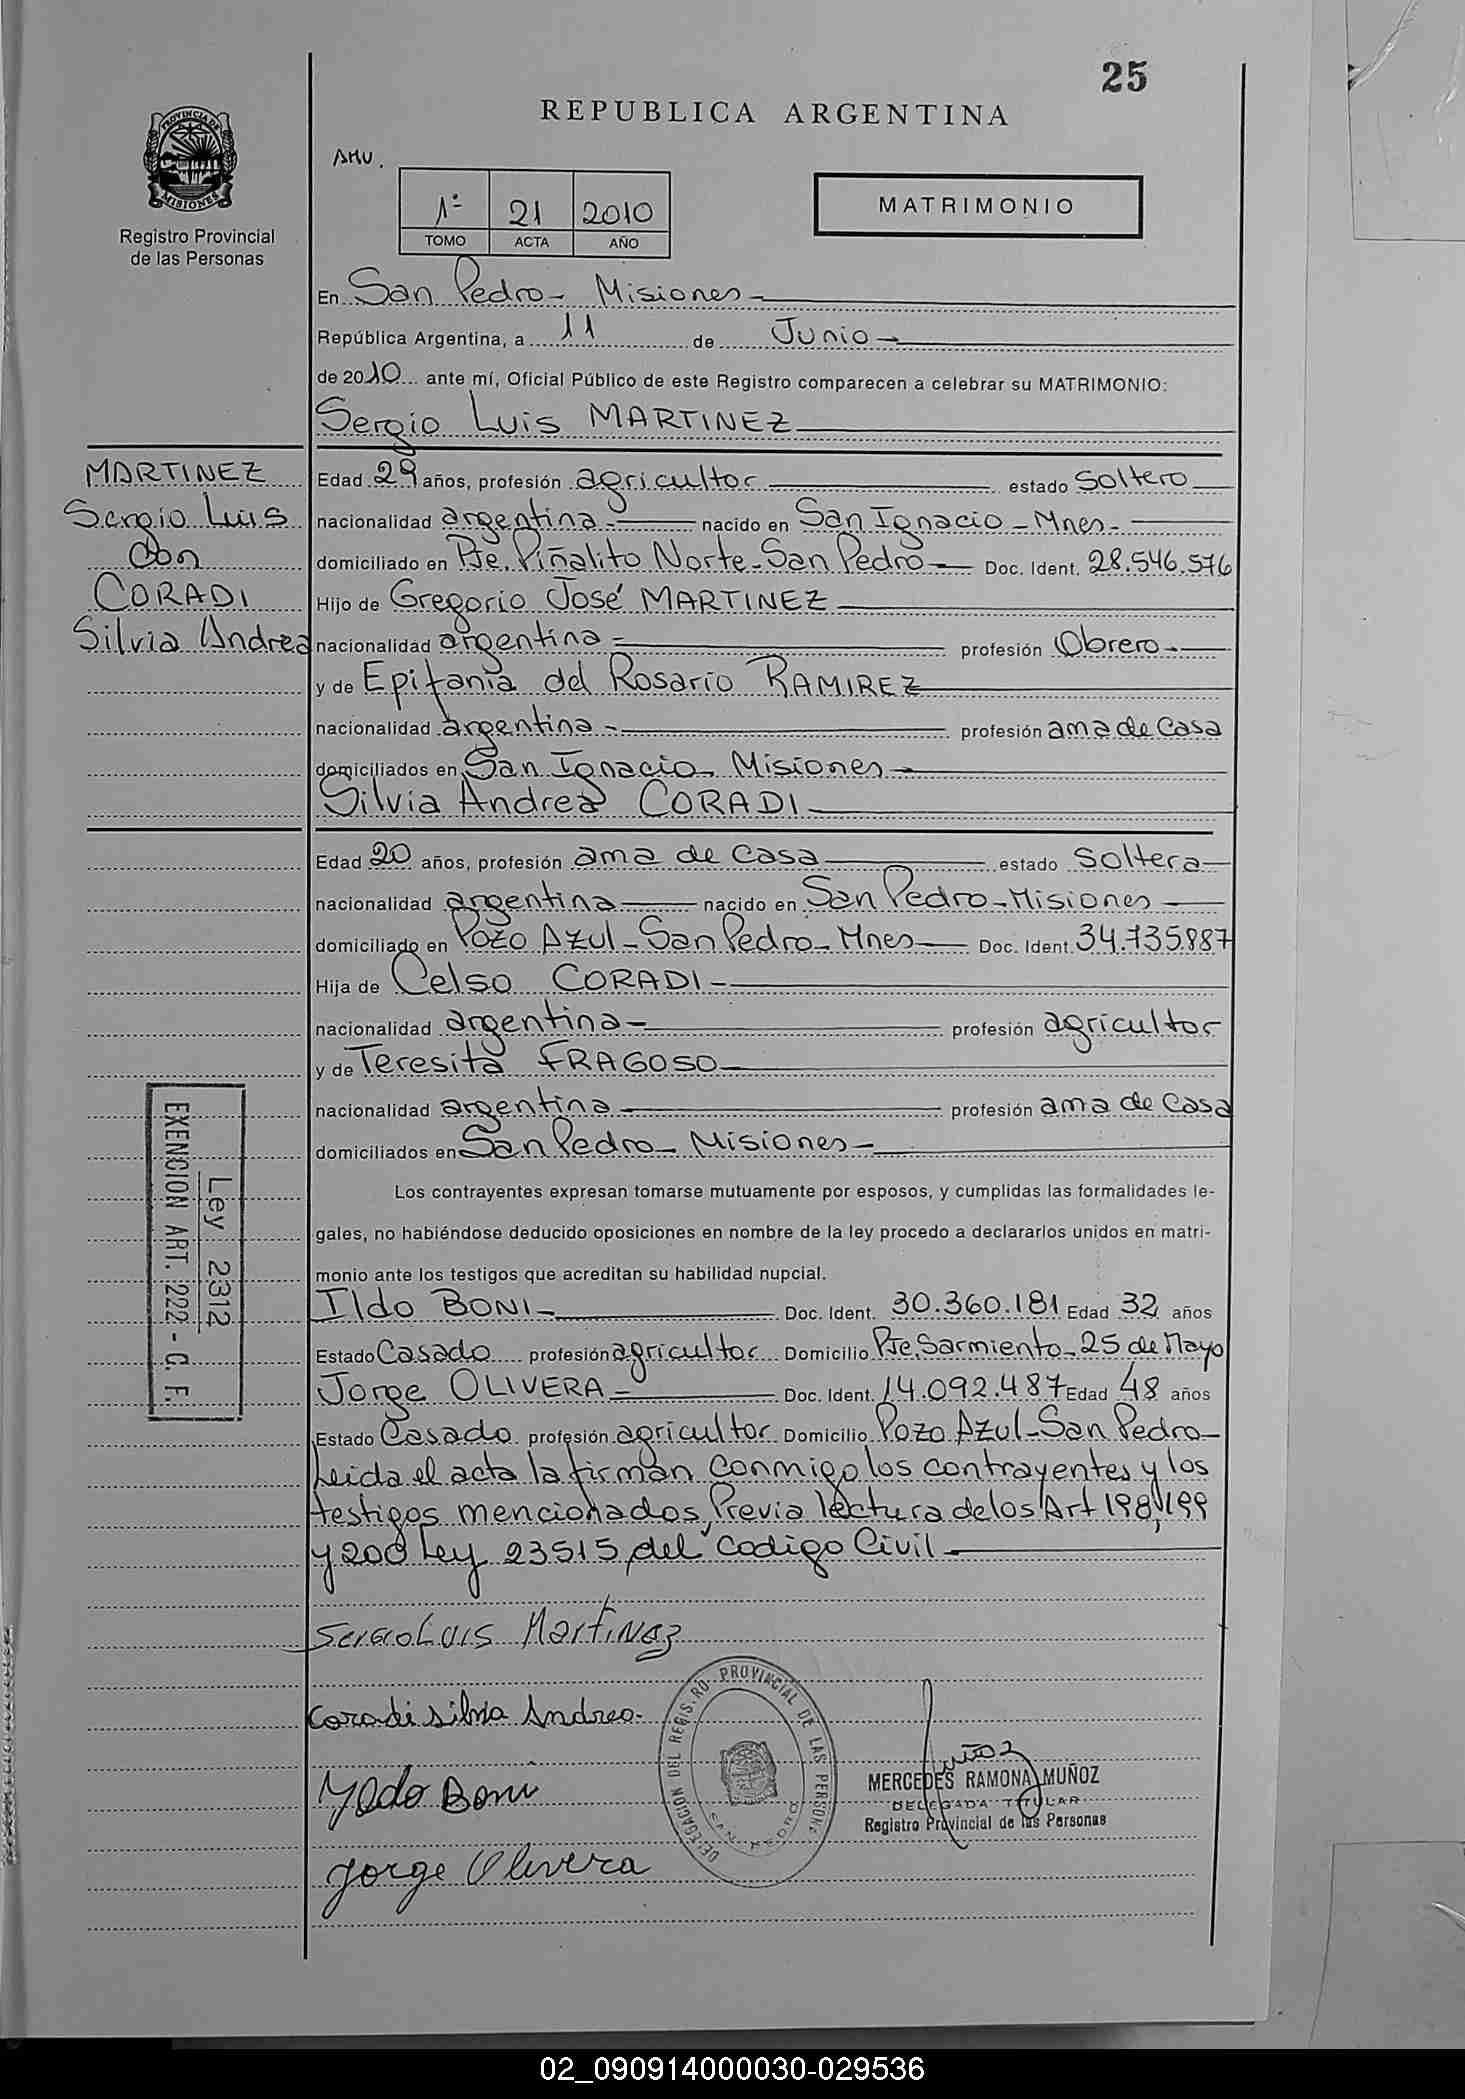 25
REPUBLICA ARGENTINA
PROVINCIA DE
MISIONES
Registro Provincial
de las Personas
1º 21 2010
TOMO ACTA AÑO
MATRIMONIO
En San Pedro - Misiones
República Argentina, a 11 de Junio
de 2010 ante mí, Oficial Público de este Registro comparecen a celebrar su MATRIMONIO:
Sergio Luis MARTINEZ
MARTINEZ
Sergio Luis
con
CORADI
Silvia Andrea
Edad 29 años, profesión agricultor estado Soltero
nacionalidad argentina nacido en San Ignacio - Mnes.
domiciliado en Pje. Piñalito Norte - San Pedro Doc. Ident. 28.546.576
Hijo de Gregorio José MARTINEZ
nacionalidad argentina profesión Obrero
y de Epifania del Rosario RAMIREZ
nacionalidad argentina profesión ama de casa
domiciliados en San Ignacio - Misiones
Silvia Andrea CORADI
Edad 20 años, profesión ama de casa estado Soltera
nacionalidad argentina nacido en San Pedro - Misiones
domiciliado en Pozo Azul - San Pedro - Mnes Doc. Ident. 34.735.887
Hija de Celso CORADI
nacionalidad argentina profesión agricultor
y de Teresita FRAGOSO
nacionalidad argentina profesión ama de casa
domiciliados en San Pedro - Misiones
Los contrayentes expresan tomarse mutuamente por esposos, y cumplidas las formalidades le-
gales, no habiéndose deducido oposiciones en nombre de la ley procedo a declararlos unidos en matri-
monio ante los testigos que acreditan su habilidad nupcial.
Ley 2312
EXENCION ART. 222 - C. F.
Ildo BONI Doc. Ident. 30.360.181 Edad 32 años
Estado Casado profesión agricultor Domicilio Pje. Sarmiento - 25 de Mayo
Jorge OLIVERA Doc. Ident. 14.092.487 Edad 48 años
Estado Casado profesión agricultor Domicilio Pozo Azul - San Pedro
Leida el acta la firman conmigo los contrayentes y los
testigos mencionados, Previa lectura de los Art 198, 199
y 200 Ley 23515 del Codigo Civil
Sergio Luis Martinez
Coradi Silvia Andrea
Yldo Boni
Jorge Olivera
DELEGACION DEL REGISTRO PROVINCIAL DE LAS PERSONAS
SAN PEDRO
Muñoz
MERCEDES RAMONA MUÑOZ
DELEGADA TITULAR
Registro Provincial de las Personas
02_090914000030-029536